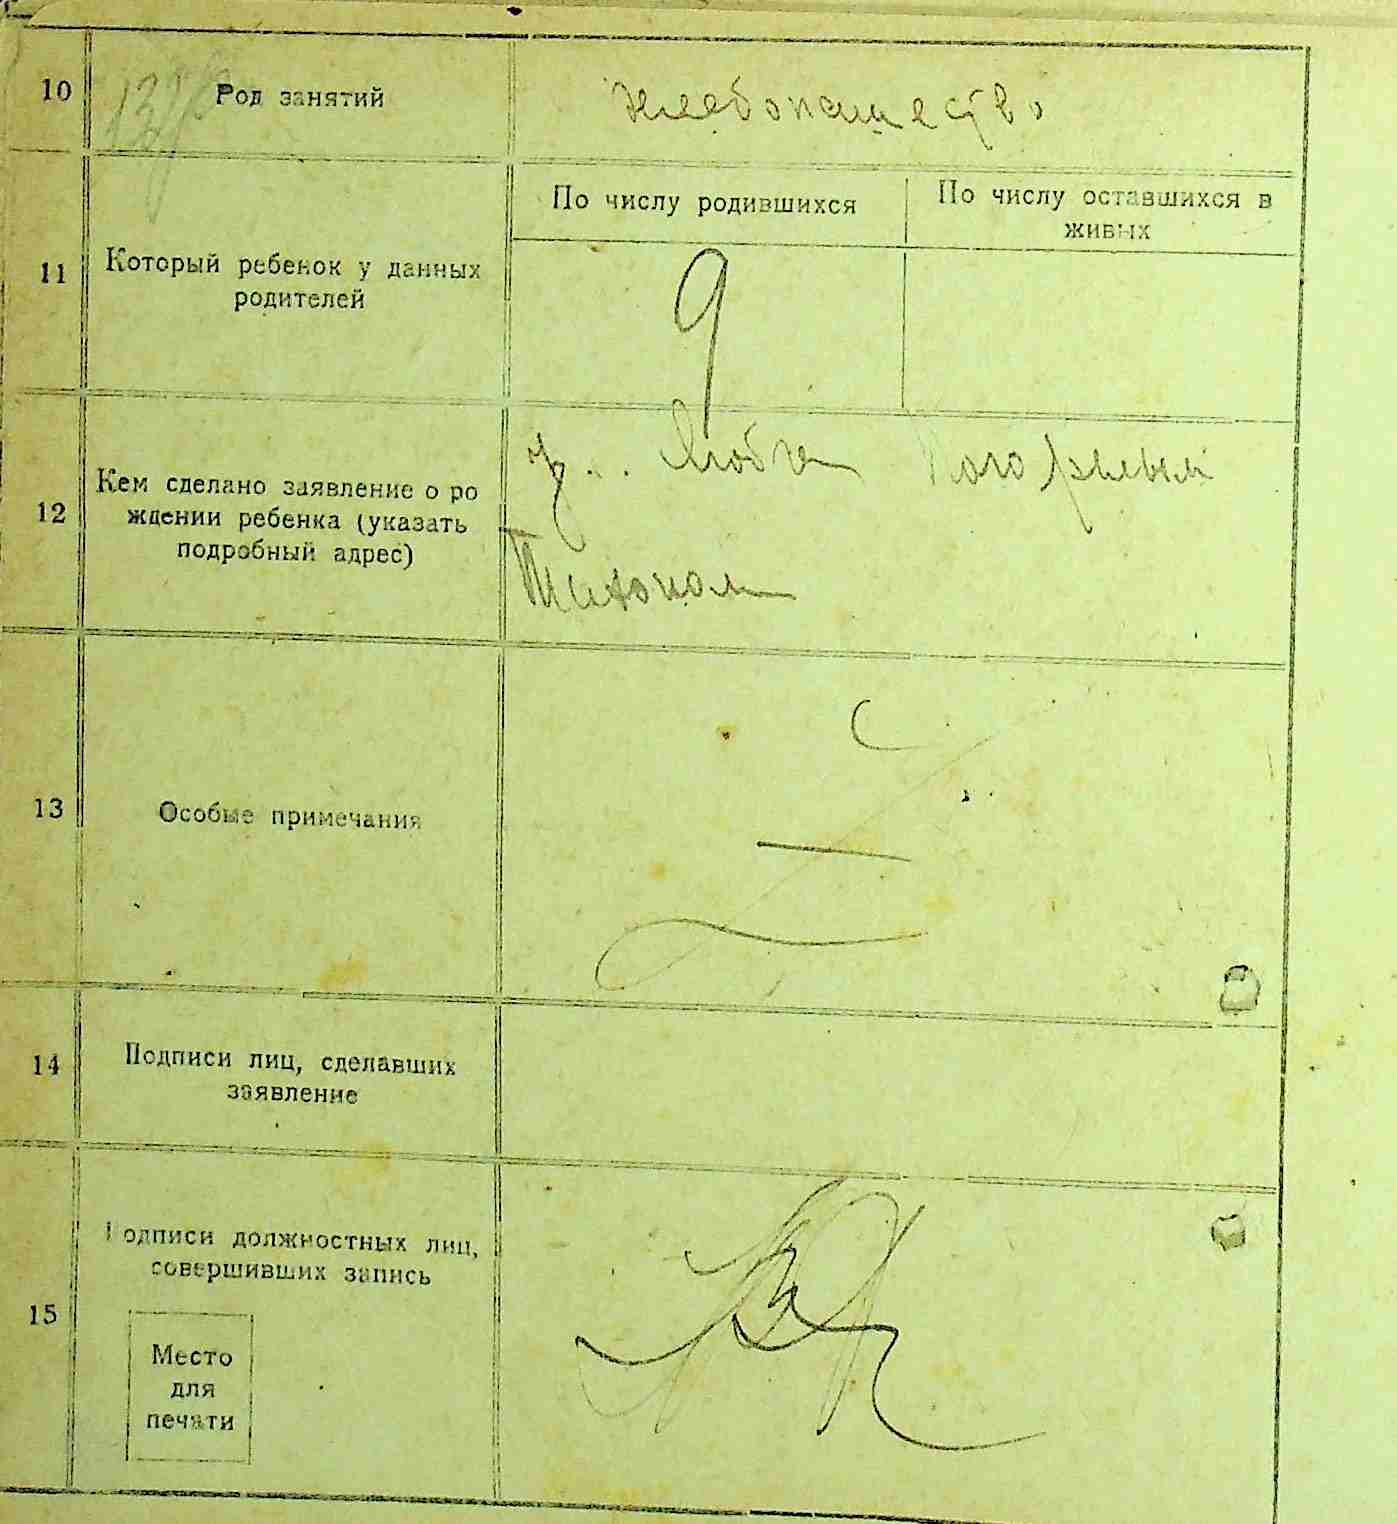 10
Род занятий
хлебопашество
По числу родившихся
По числу оставшихся в
живых
11
Который ребенок у данных
родителей
9
12
Кем сделано заявление о ро
ждении ребенка (указать
подробный адрес)
Погорелым
Тихоном
13
Особые примечания
—
14
Подписи лиц, сделавших
заявление
15
Подписи должностных лиц,
совершивших запись
Место
для
печати